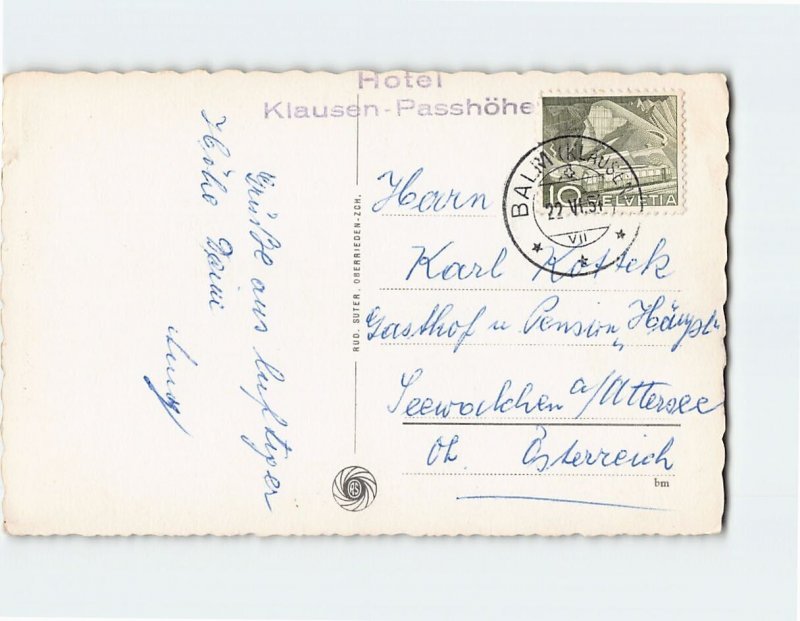 Hotel
Klausen-Passhöhe
HELVETIA
10
BALM (KLAUSEN)
22.VI.51
VII
Grüße aus luftiger
Höhe
RUD. SUTER, OBERRIEDEN-ZCH.
RS
Herrn
Karl Kottek
Gasthof u Pension
Seewalchen a/Attersee
OÖ. Österreich
bm